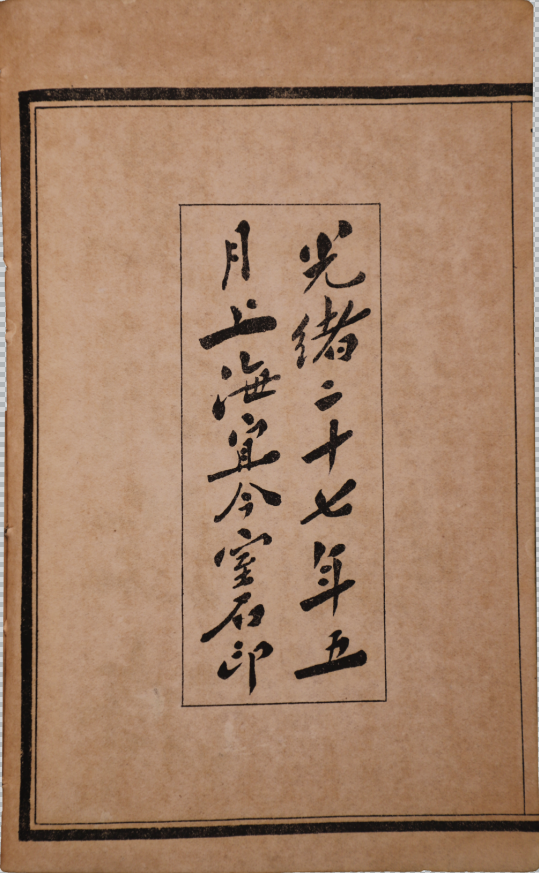 光緒二十七年五
月上海宜今室石印